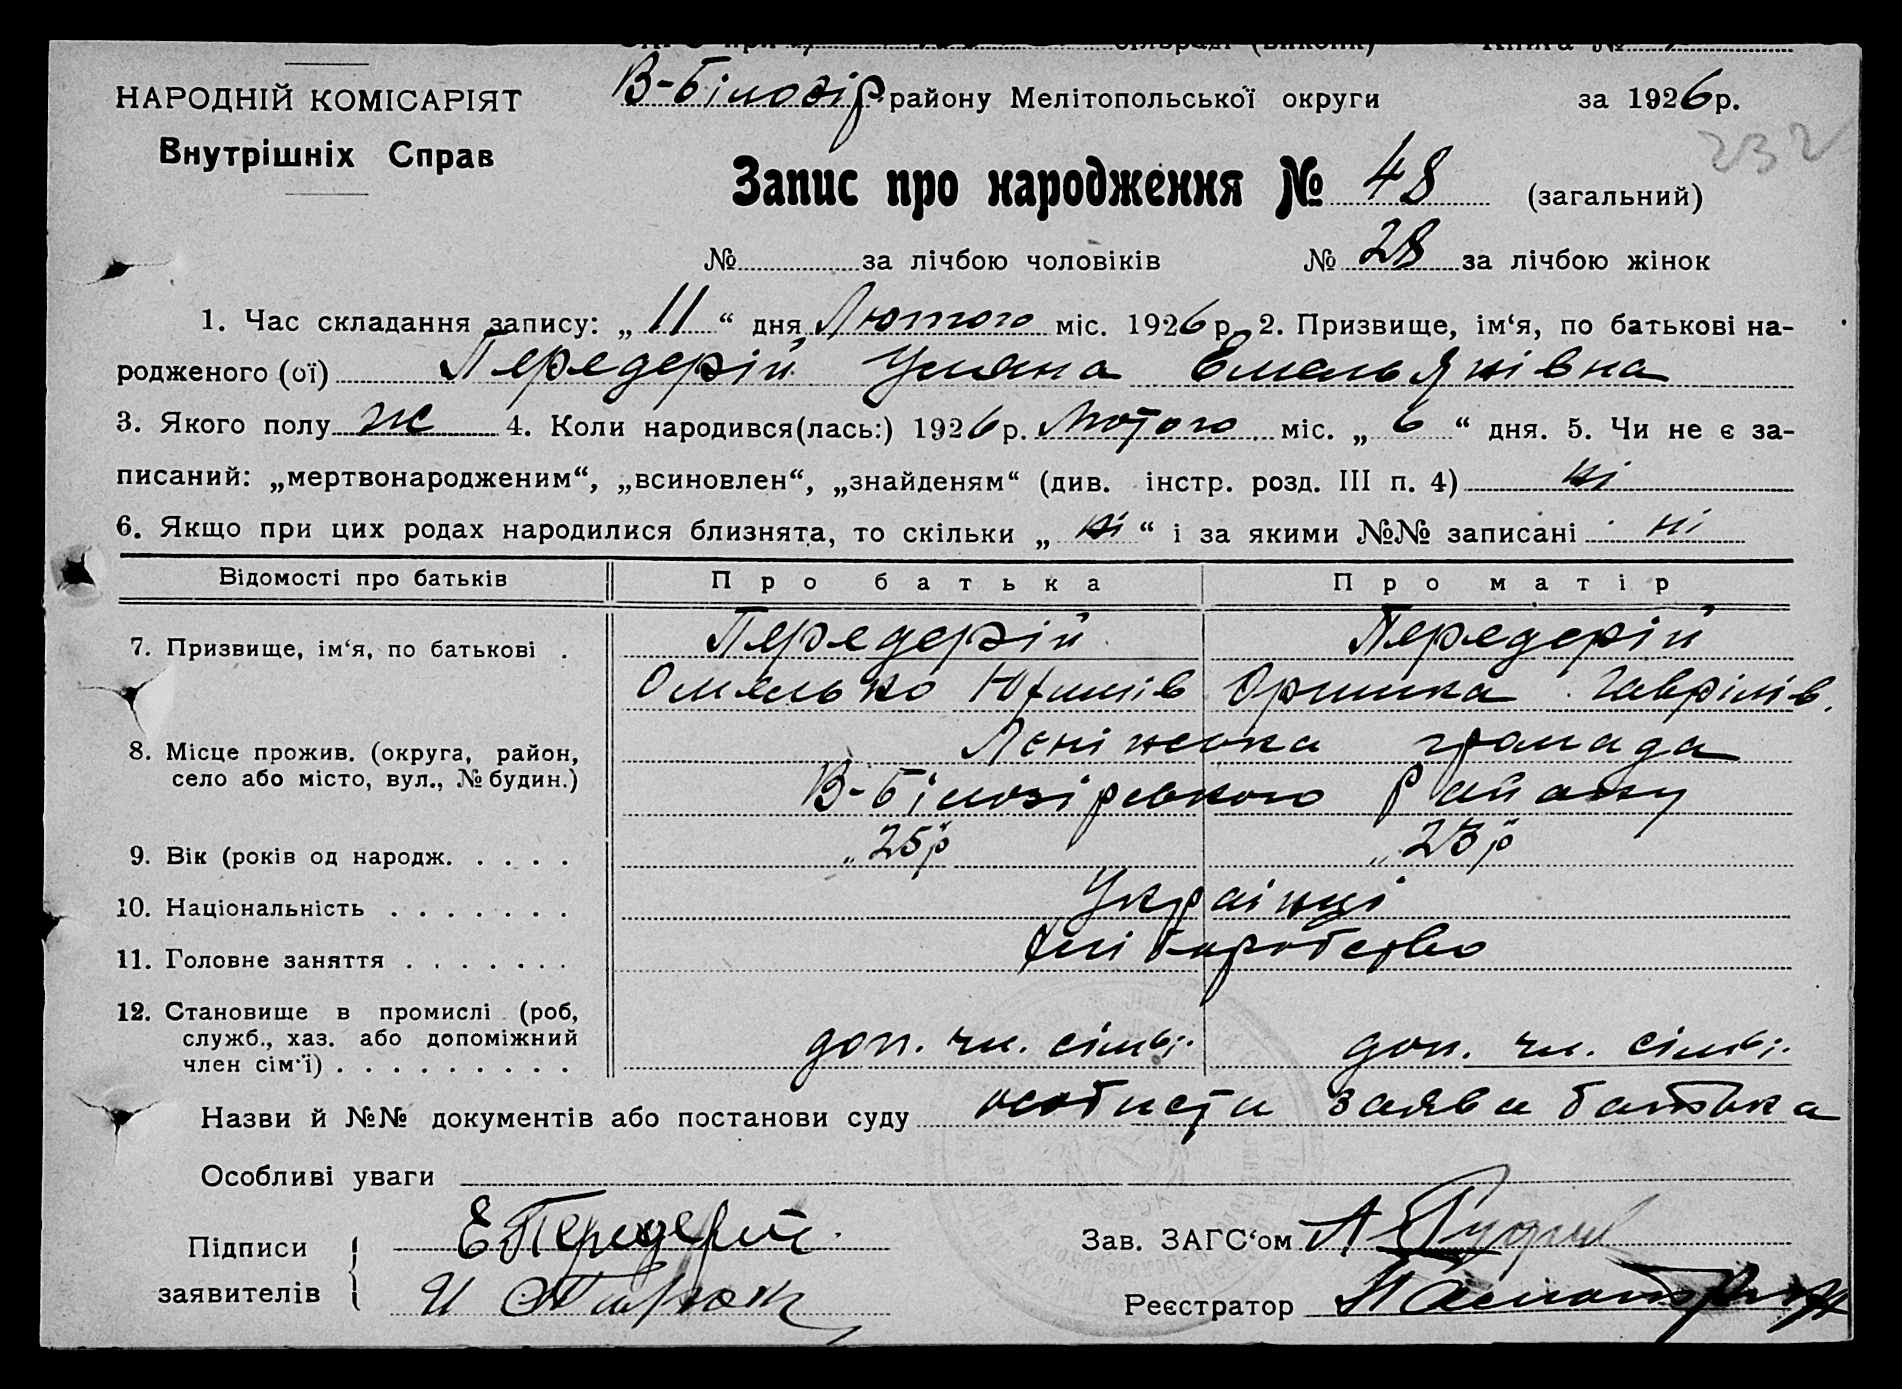 НАРОДНІЙ КОМІСАРІЯТ
Внутрішніх Справ
В-Білозір району Мелітопольської округи за 1926 р.
232
Запис про народження № 48 (загальний)
№ за лічбою чоловіків № 28 за лічбою жінок
1. Час складання запису: „11“ дня Лютого міс. 1926 р. 2. Призвище, ім‘я, по батькові на-
родженого (ої) Передерій Уляна Емельянівна
3. Якого полу ж 4. Коли народився(лась:) 1926 р. Лютого міс. „6“ дня. 5. Чи не є за-
писаний: „мертвонародженим“, „всиновлен“, „знайденям“ (див. інстр. розд. III п. 4) ні
6. Якщо при цих родах народилися близнята, то скільки „ні“ і за якими №№ записані ні
Відомості про батьків Про батька Про матір
7. Призвище, ім‘я, по батькові . Передерій Передерій
Омелько Юхимів Оришка Гаврилів.
8. Місце прожив. (округа, район, громада
село або місто, вул., № будин.) В-Білозірського Району
9. Вік (років од народж. . . . . „25 р „23 р
10. Національність . . . . . . . Українці
11. Головне заняття . . . . . . . хліборобство
12. Становище в промислі (роб,
служб., хаз. або допоміжний доп. чл. сімьі. доп. чл. сімьі.
член сім‘ї) . . . . . . . . .
Назви й №№ документів або постанови суду особиста заява батька
Особливі уваги
Підписи Е Передерій Зав. ЗАГС‘ом А
заявителів И Реєстратор